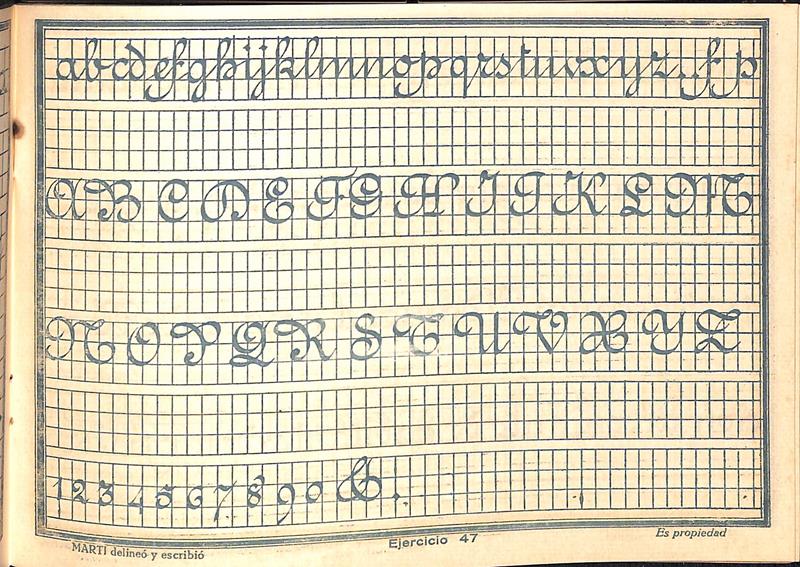 abcdefghijklmnopqrstuvxyz. f p
A B C D E F G H I J K L M
N O P Q R S T U V X Y Z
1 2 3 4 5 6 7 8 9 0 &.
MARTI delineó y escribió
Ejercicio 47
Es propiedad